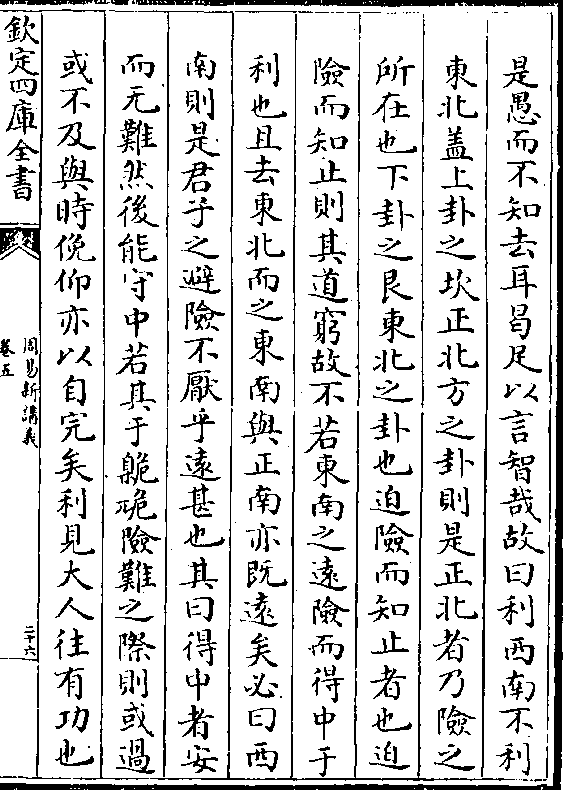 是愚而不知去耳曷足以言智哉故曰利西南不利
東北蓋上卦之坎正北方之卦則是正北者乃險之
所在也下卦之艮東北之卦也迫險而知止者也迫
險而知止則其道窮故不若東南之遠險而得中于
利也且去東北而之東南與正南亦既遠矣必曰西
南則是君子之避險不厭乎遠甚也其曰得中者安
而无難然後能守中若其于臲卼險難之際則或過
或不及與時俛仰亦以自完矣利見大人往有功也
欽定四庫全書
周易新講義
卷五
二十六